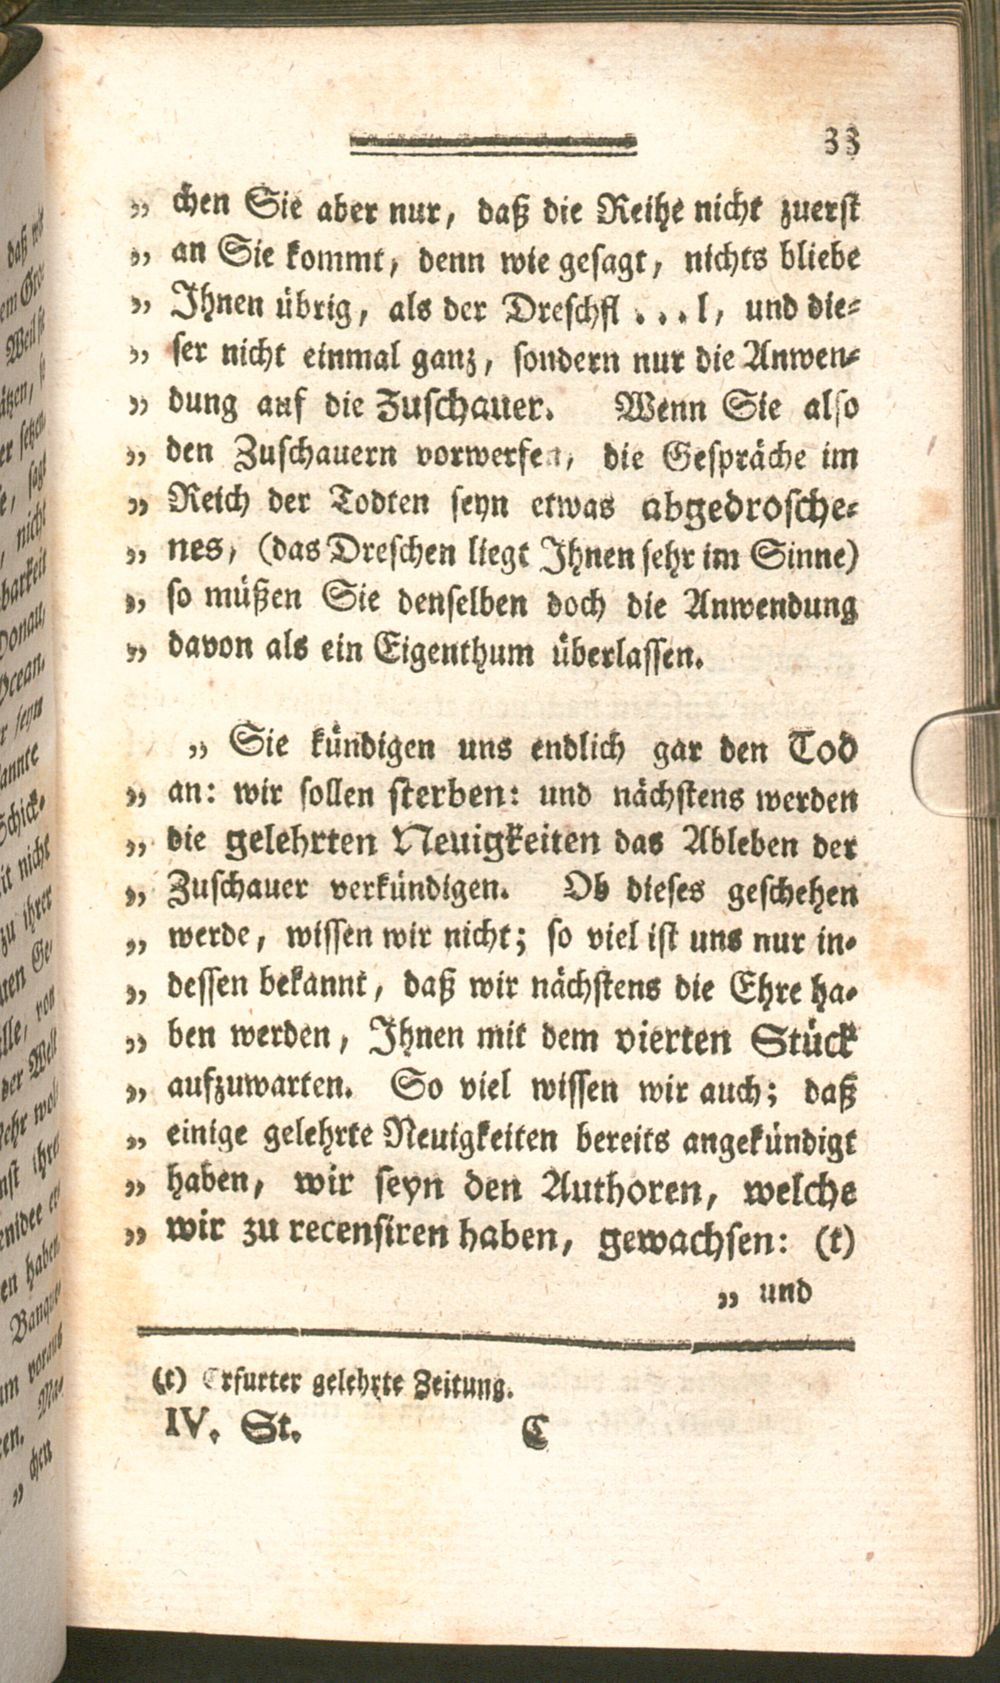 33
„ chen Sie aber nur, daß die Reihe nicht zuerst
„ an Sie kommt, denn wie gesagt, nichts bliebe
„ Ihnen übrig, als der Dreschfl...l, und die=
„ ser nicht einmal ganz, sondern nur die Anwen=
„ dung auf die Zuschauer. Wenn Sie also
„ den Zuschauern vorwerfen, die Gespräche im
„ Reich der Todten seyn etwas abgedrosche=
„ nes, (das Dreschen liegt Ihnen sehr im Sinne)
„ so müßen Sie denselben doch die Anwendung
„ davon als ein Eigenthum überlassen.
„ Sie kündigen uns endlich gar den Tod
„ an: wir sollen sterben: und nächstens werden
„ die gelehrten Neuigkeiten das Ableben der
„ Zuschauer verkündigen. Ob dieses geschehen
„ werde, wissen wir nicht; so viel ist uns nur in=
„ dessen bekannt, daß wir nächstens die Ehre ha=
„ ben werden, Ihnen mit dem vierten Stück
„ aufzuwarten. So viel wissen wir auch; daß
„ einige gelehrte Neuigkeiten bereits angekündigt
„ haben, wir seyn den Authoren, welche
„ wir zu recensiren haben, gewachsen: (t)
„ und
(t) Erfurter gelehrte Zeitung.
IV. St. C